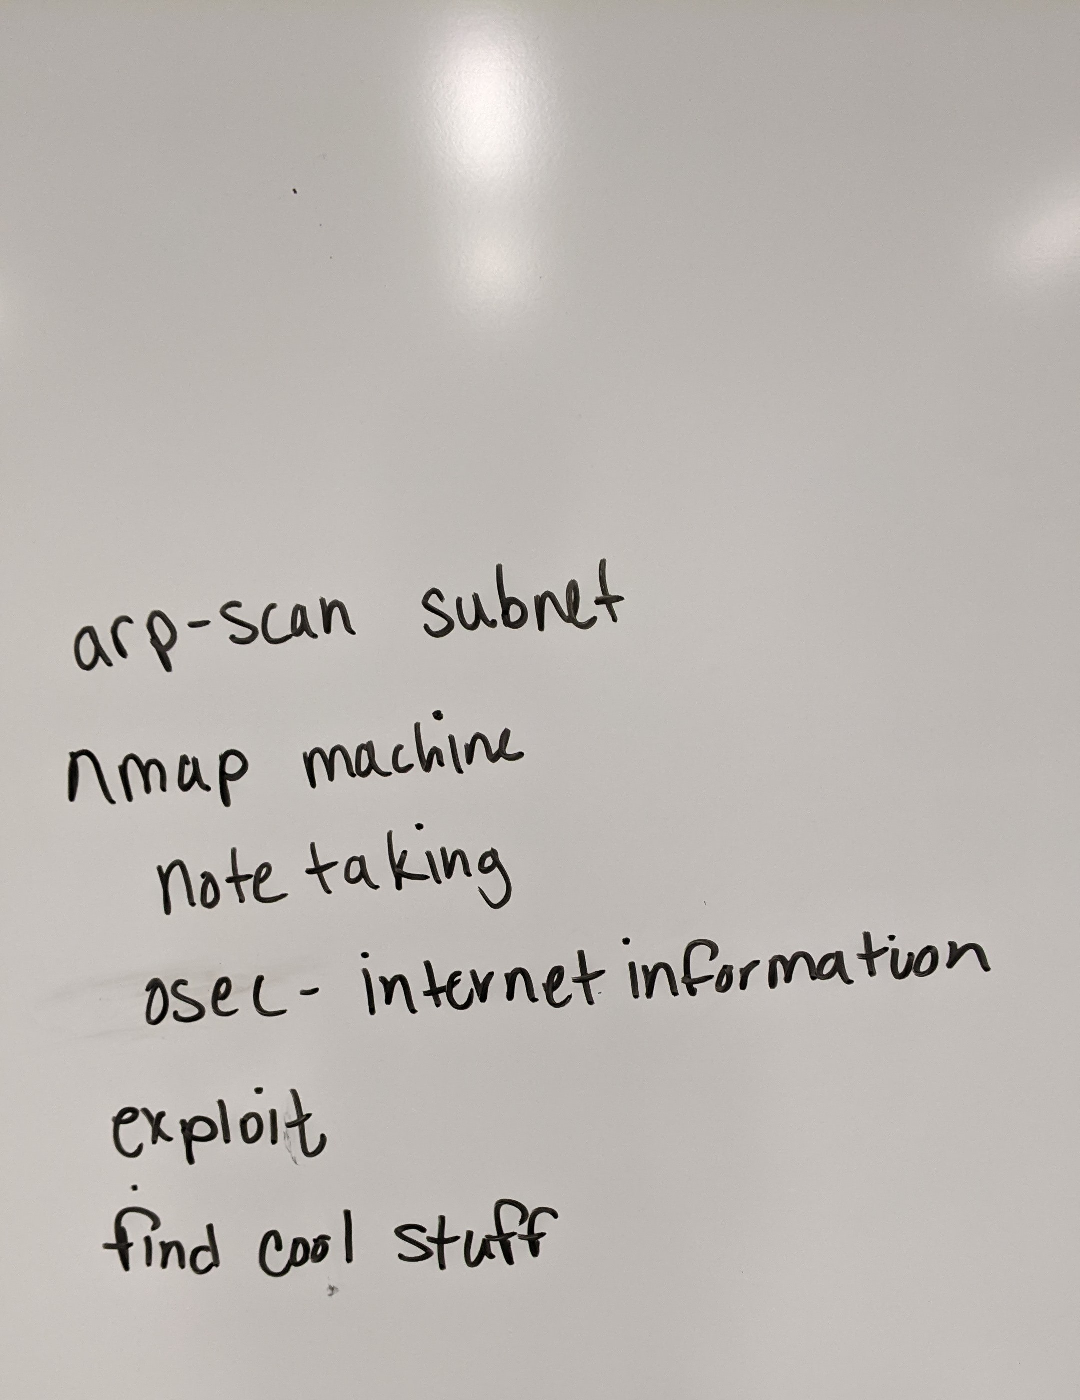 arp-scan subnet
nmap machine
note taking
osec - internet information
exploit
find cool stuff